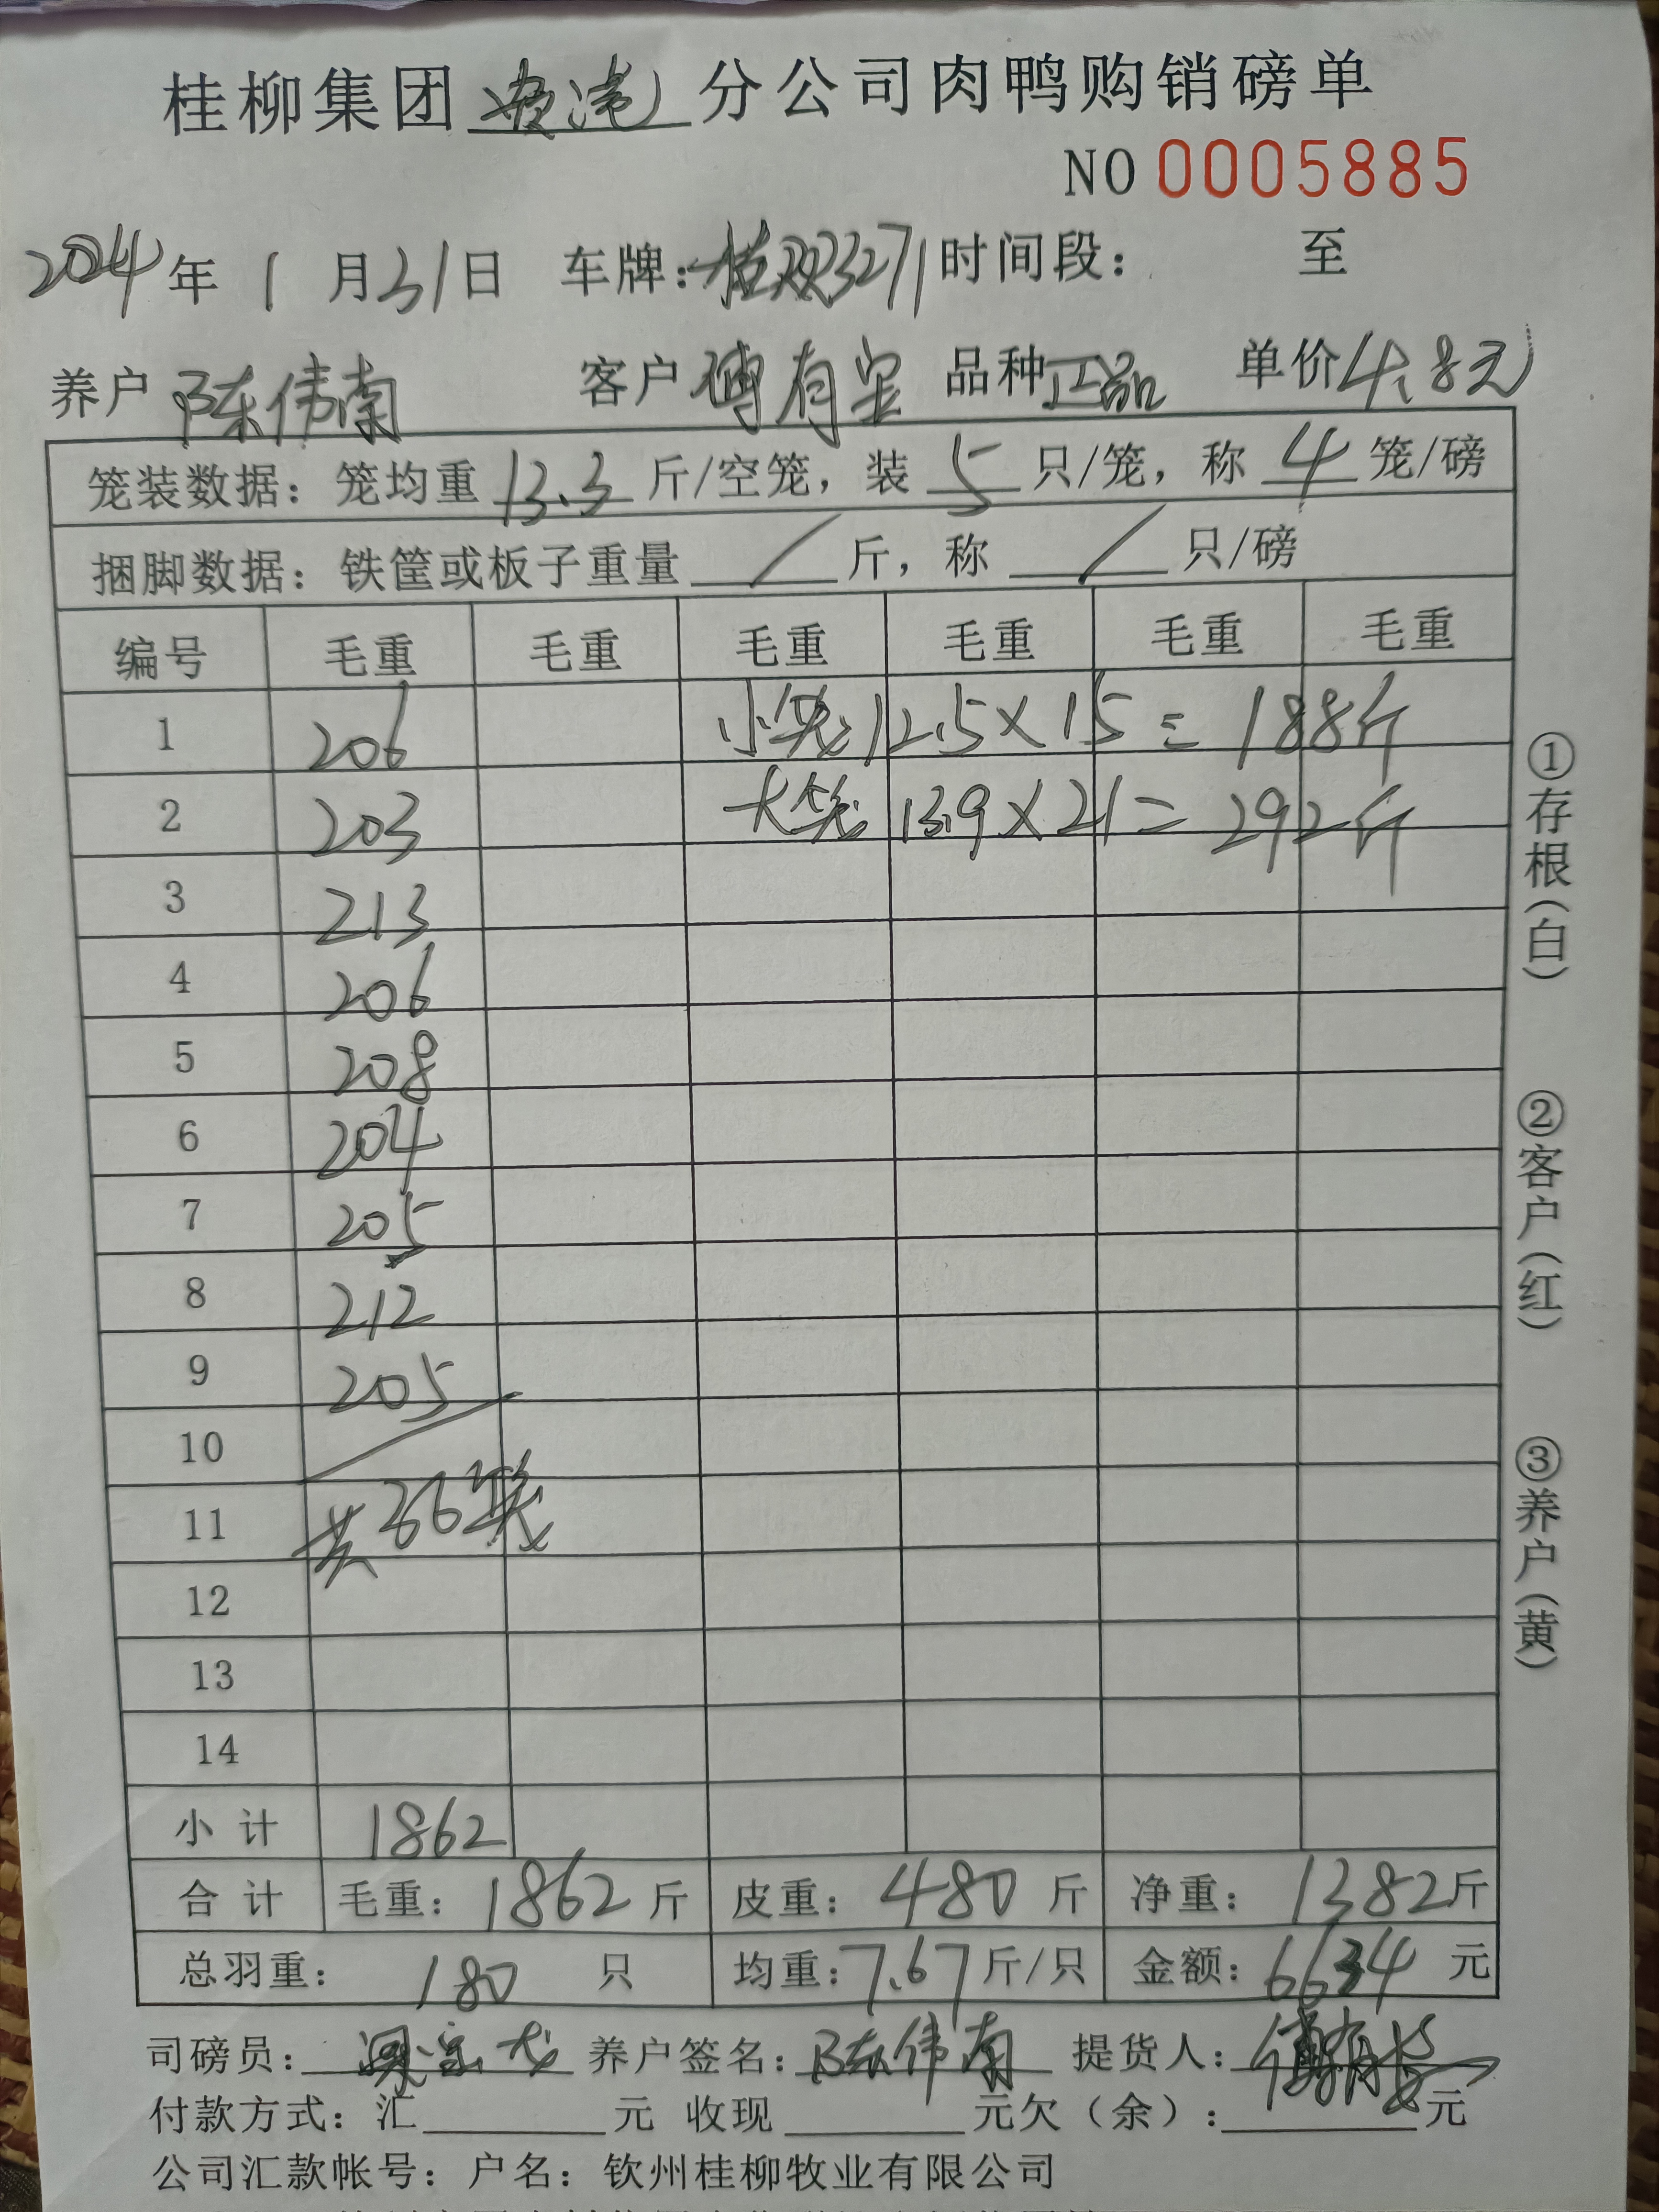 桂柳集团 分公司肉鸭购销磅单
NO 0005885
2024年 1 月31日 车牌: 3271 时间段: 至
养户 陈伟南 客户 傅有宝 品种 正品 单价 4.8元
笼装数据: 笼均重 13.3 斤/空笼, 装 5 只/笼, 称 4 笼/磅
捆脚数据: 铁筐或板子重量 / 斤, 称 / 只/磅
编号 毛重 毛重 毛重 毛重 毛重 毛重
1 206 小笼 12.5×15=188斤
2 203 大笼 13.9×21=292斤
3 213
4 206
5 208
6 204
7 205
8 212
9 205
10
11 共36笼
12
13
14
小计 1862
合计 毛重: 1862 斤 皮重: 480 斤 净重: 1382 斤
总羽重: 180 只 均重: 7.67 斤/只 金额: 6634 元
司磅员: 养户签名: 陈伟南 提货人:
付款方式: 汇 元 收现 元欠(余): 元
公司汇款帐号: 户名: 钦州桂柳牧业有限公司
①存根(白)
②客户(红)
③养户(黄)